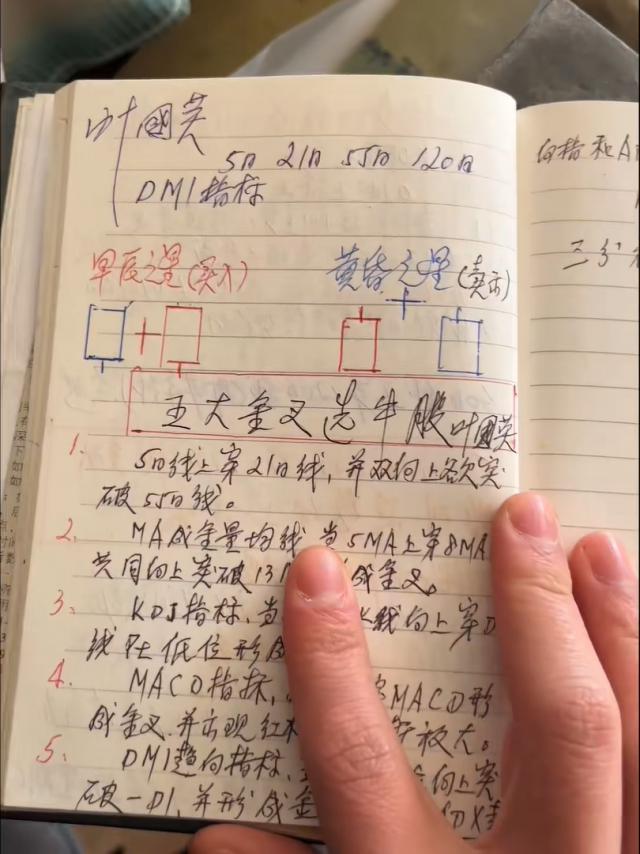 叶國英
5日 21日 55日 120日
DMI指标
早辰之星(买入)
黄昏之星(卖出)
五大金叉选牛股叶國英
1. 5日线上穿21日线，并双向上
破55日线。
2. MA成交量均线 当5MA上穿8MA
共同向上突破13 成金叉。
3. KDJ指标，当 线向上穿D
线 在低位形成
4. MACD指标， MACD形
成金叉，并出现红 放大。
5. DMI趋向指标， 向上突
破-DI，并形成金
向指和A
三分